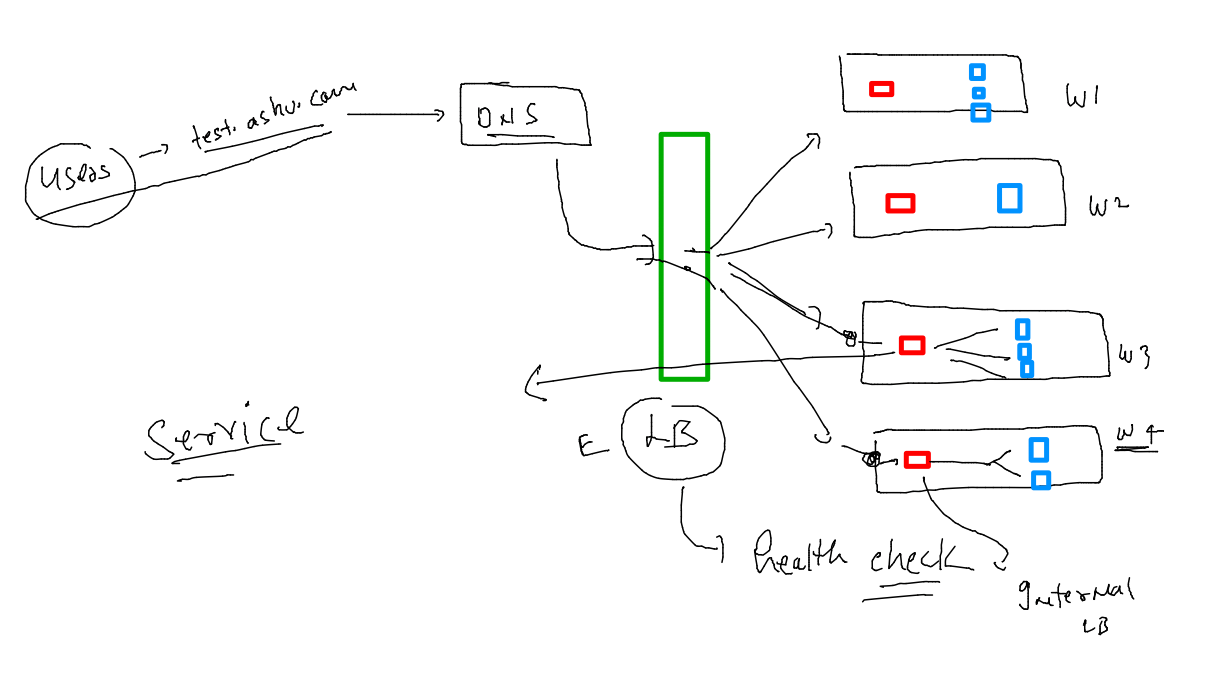 users
test.ashu.com
DNS
W1
W2
W3
W4
E
LB
Service
health check
Internal
LB